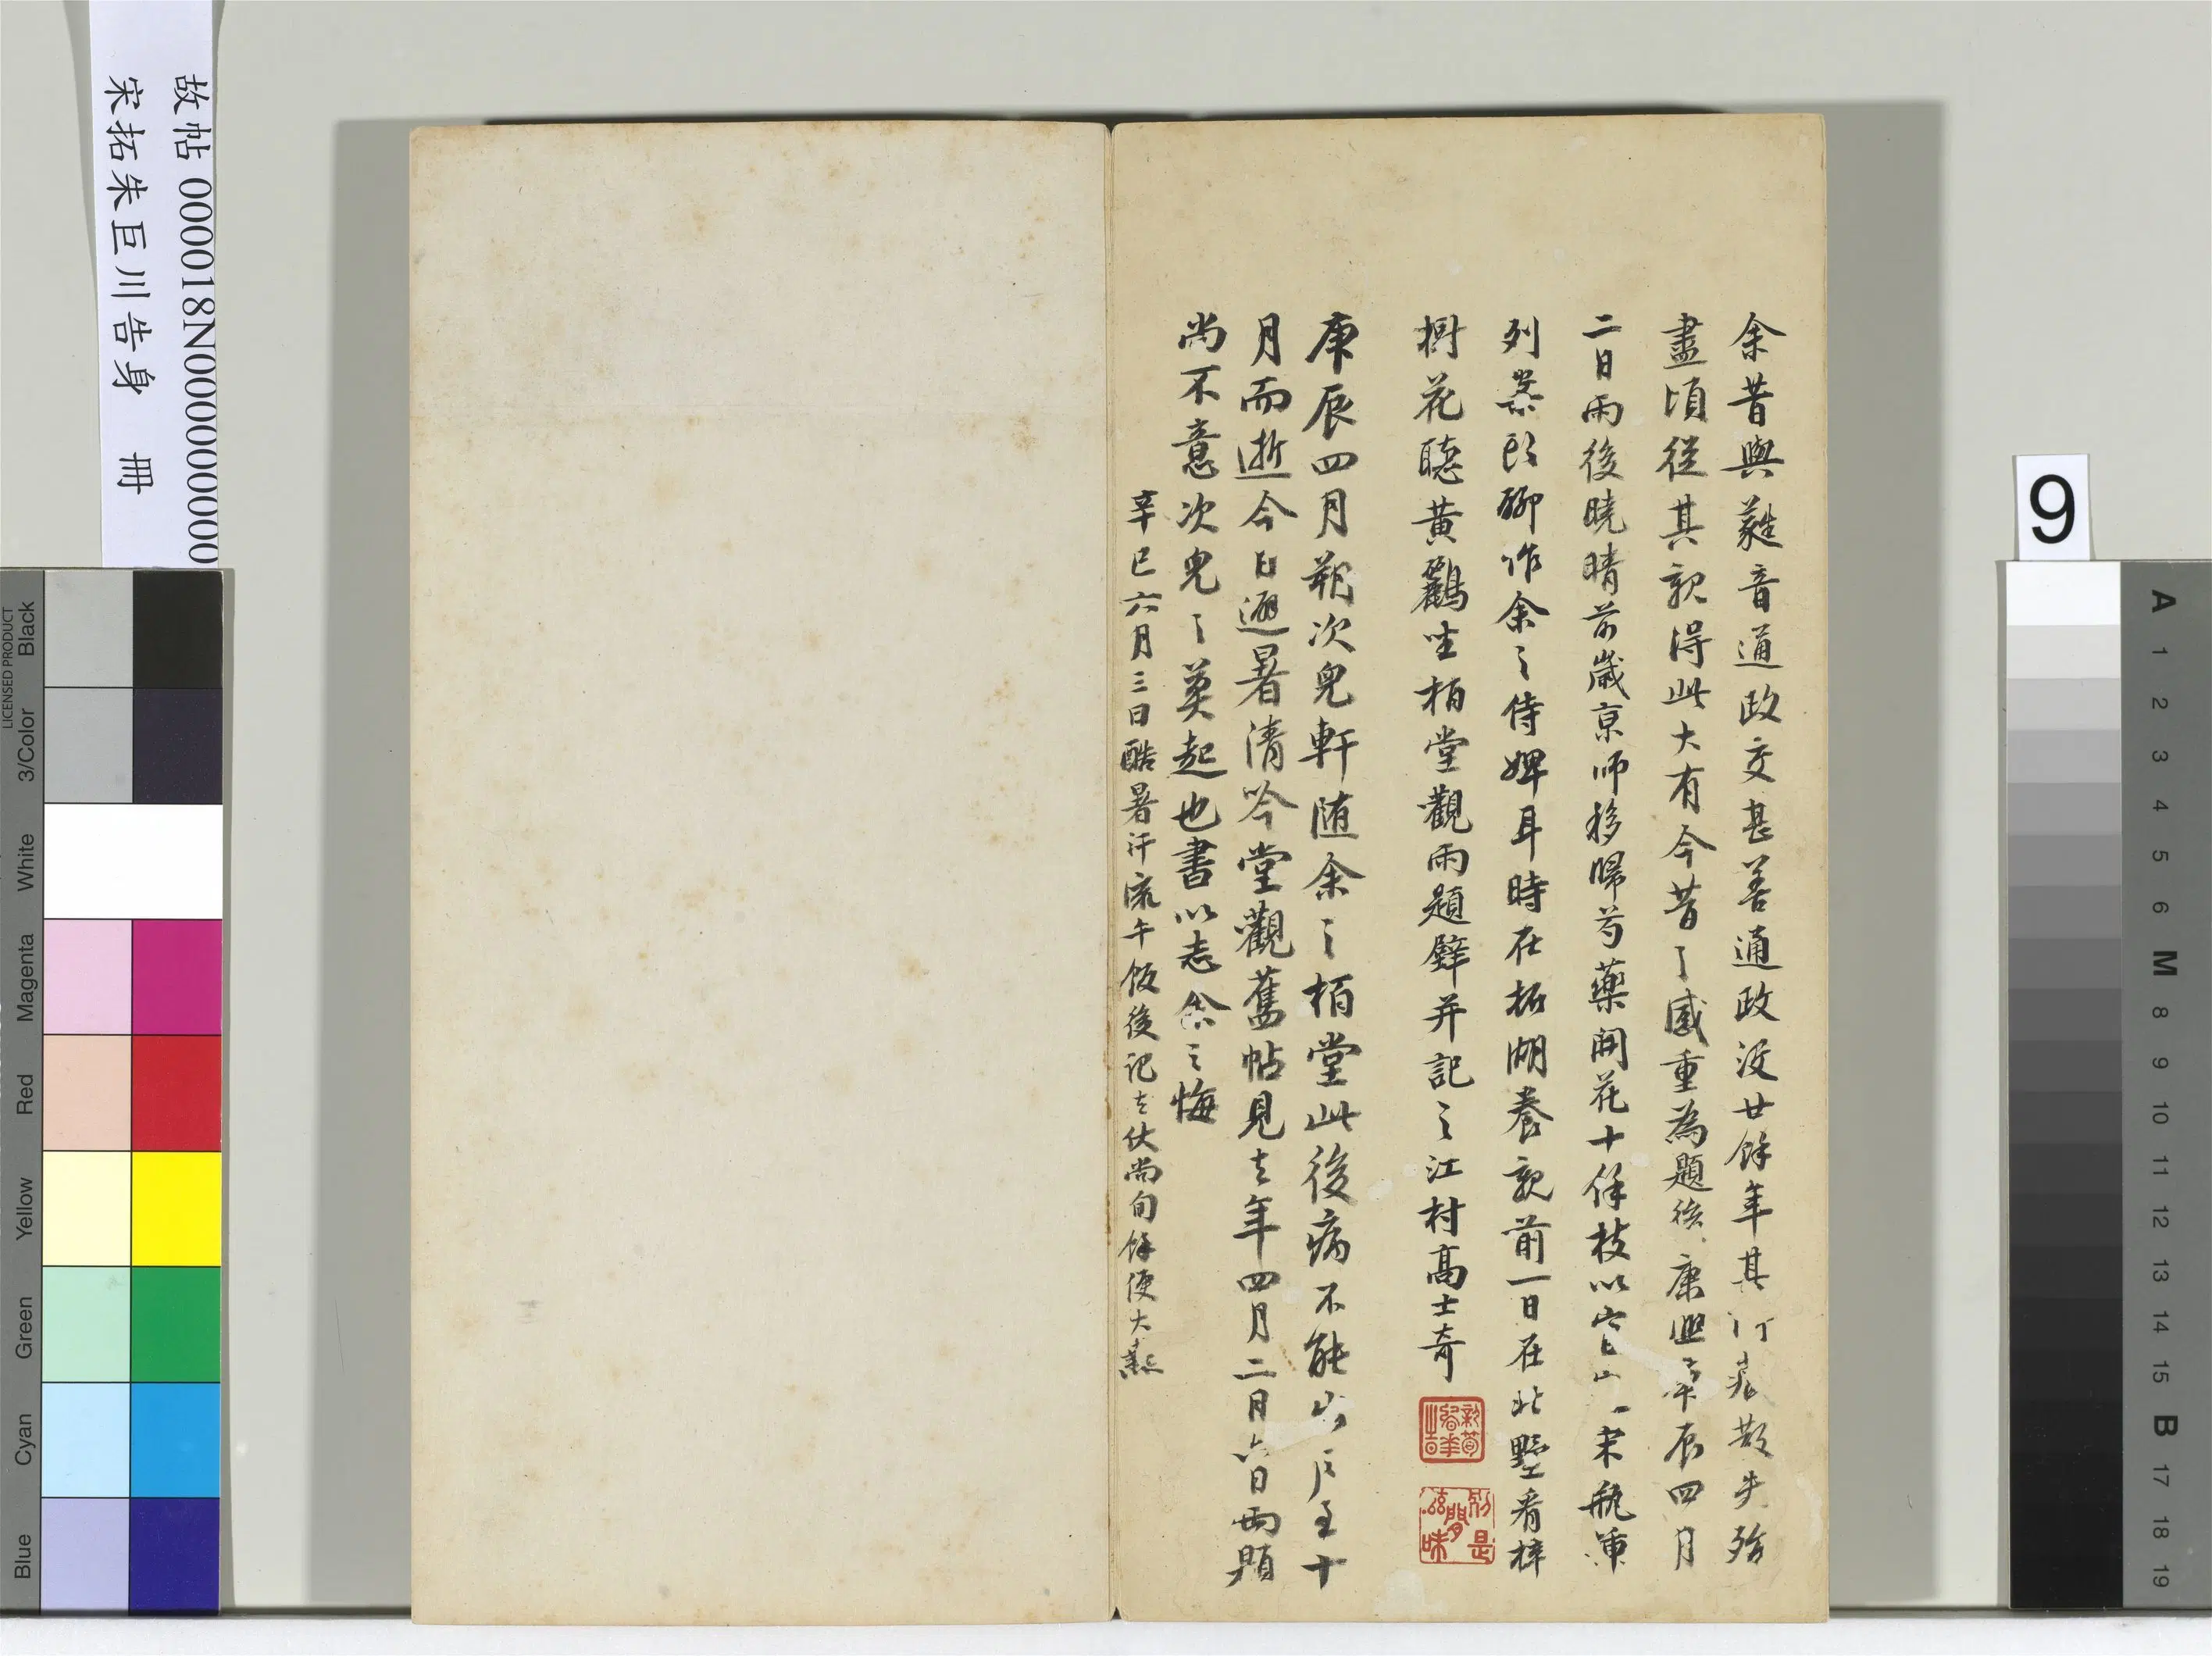 余昔與蕤音通政交甚善通政沒廿餘年其所藏散失殆
盡頃從其親得此大有今昔之感重為題後康熙庚辰四月
二日雨後曉晴前歲京師移歸芍藥開花十餘枝以官一宋瓶陳
列案頭聊作余之侍婢耳時在柘湖養親前一日在北墅看梓
樹花聽黃鸝坐栢堂觀雨題辭并記之江村高士奇
別是閒滋味
庚辰四月朔次兒軒隨余之栢堂此後病不能出戶至十
月而逝今日避暑清吟堂觀舊帖見去年四月二月六日兩題
尚不意次兒之莫起也書以志余之悔
辛巳六月三日酷暑汗流午飯後記去伏尚旬餘便大熱
故帖 000018N000000000
宋拓朱巨川告身 冊
9
LICENSED PRODUCT
Black
3/Color
White
Magenta
Red
Yellow
Green
Cyan
Blue
A
1
2
3
4
5
6
M
8
9
10
11
12
13
14
15
B
17
18
19